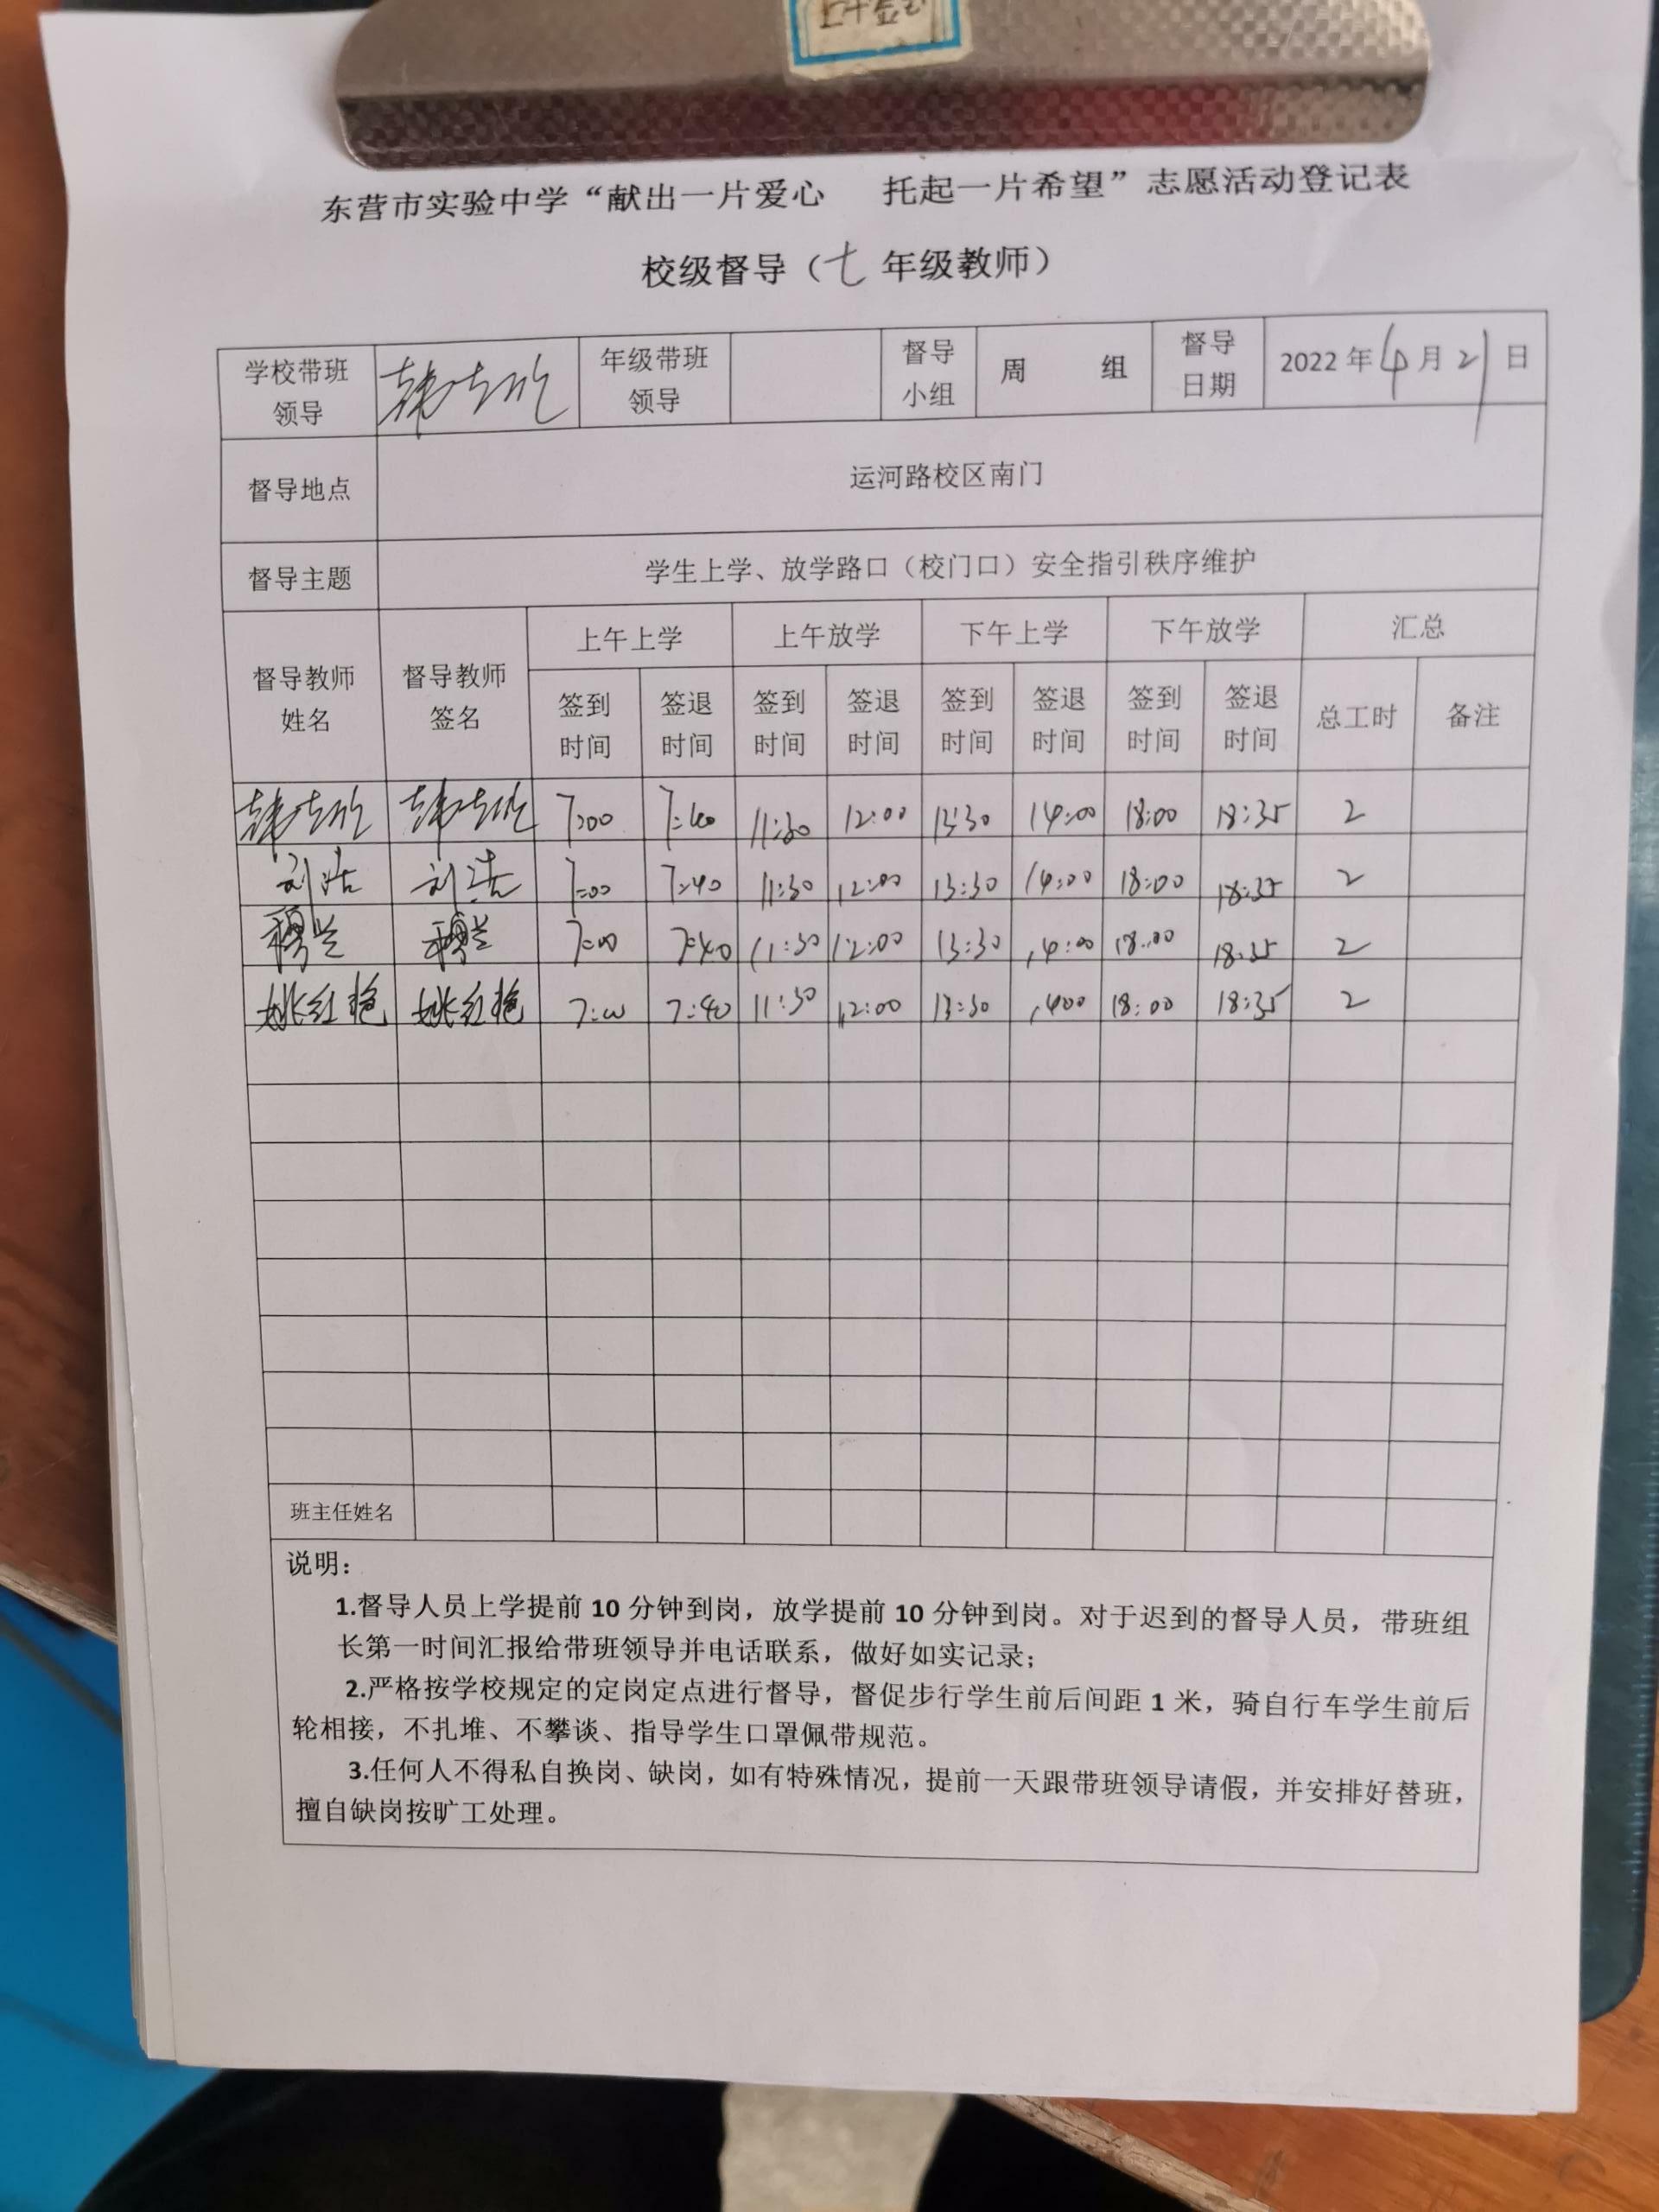 东营市实验中学“献出一片爱心 托起一片希望”志愿活动登记表
校级督导（七年级教师）
学校带班领导 年级带班领导 督导小组 周 组 督导日期 2022年4月21日
督导地点 运河路校区南门
督导主题 学生上学、放学路口（校门口）安全指引秩序维护
督导教师姓名 督导教师签名 上午上学 上午放学 下午上学 下午放学 汇总
签到时间 签退时间 签到时间 签退时间 签到时间 签退时间 签到时间 签退时间 总工时 备注
7:00 7:40 11:30 12:00 13:30 14:00 18:00 18:35 2
刘洁 刘洁 7:00 7:40 11:30 12:00 13:30 14:00 18:00 18:35 2
穆兰 穆兰 7:00 7:40 11:30 12:00 13:30 14:00 18:00 18:35 2
姚红艳 姚红艳 7:00 7:40 11:30 12:00 13:30 1400 18:00 18:35 2
班主任姓名
说明：
1.督导人员上学提前10分钟到岗，放学提前10分钟到岗。对于迟到的督导人员，带班组
长第一时间汇报给带班领导并电话联系，做好如实记录；
2.严格按学校规定的定岗定点进行督导，督促步行学生前后间距1米，骑自行车学生前后
轮相接，不扎堆、不攀谈、指导学生口罩佩带规范。
3.任何人不得私自换岗、缺岗，如有特殊情况，提前一天跟带班领导请假，并安排好替班，
擅自缺岗按旷工处理。